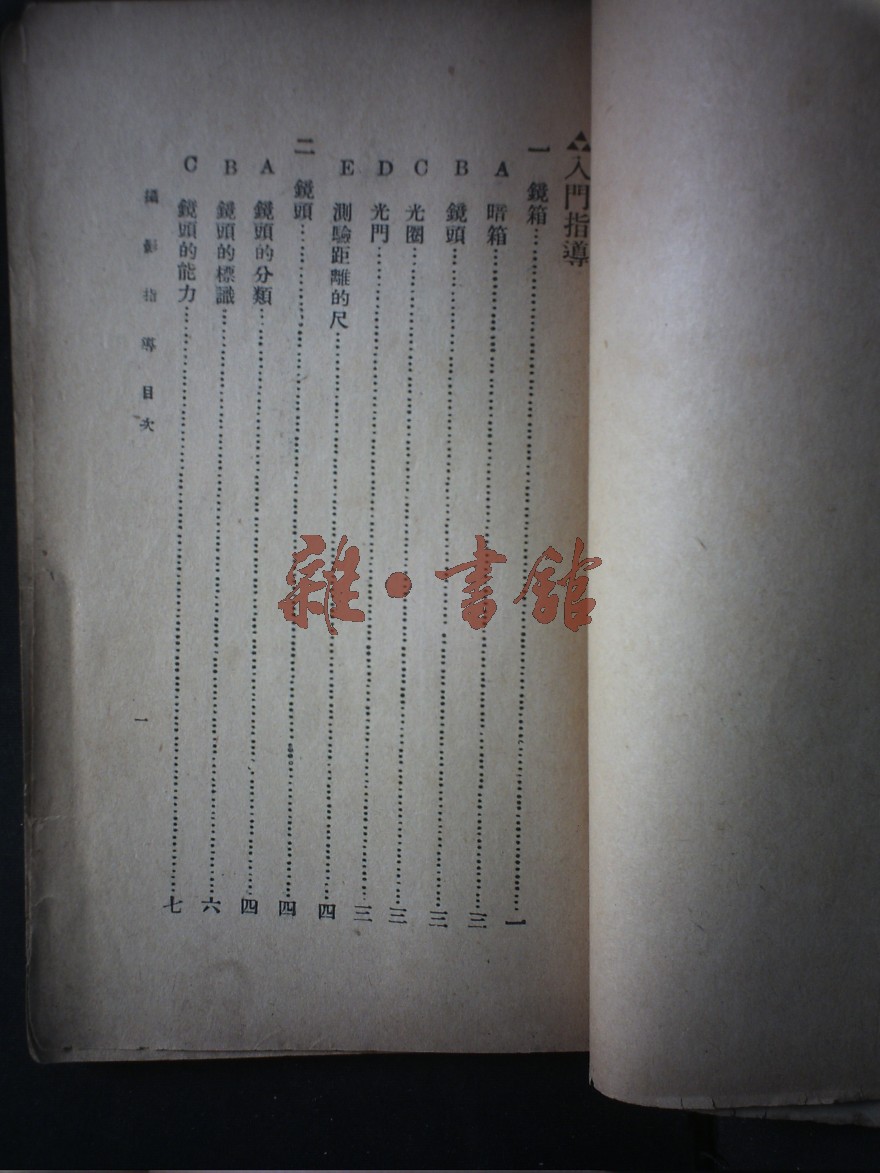 入門指導
一 鏡箱……一
A 暗箱……三
B 鏡頭……三
C 光圈……三
D 光門……三
E 測驗距離的尺……四
二 鏡頭……四
A 鏡頭的分類……四
B 鏡頭的標識……六
C 鏡頭的能力……七
攝影指導目次
一
雜·書館